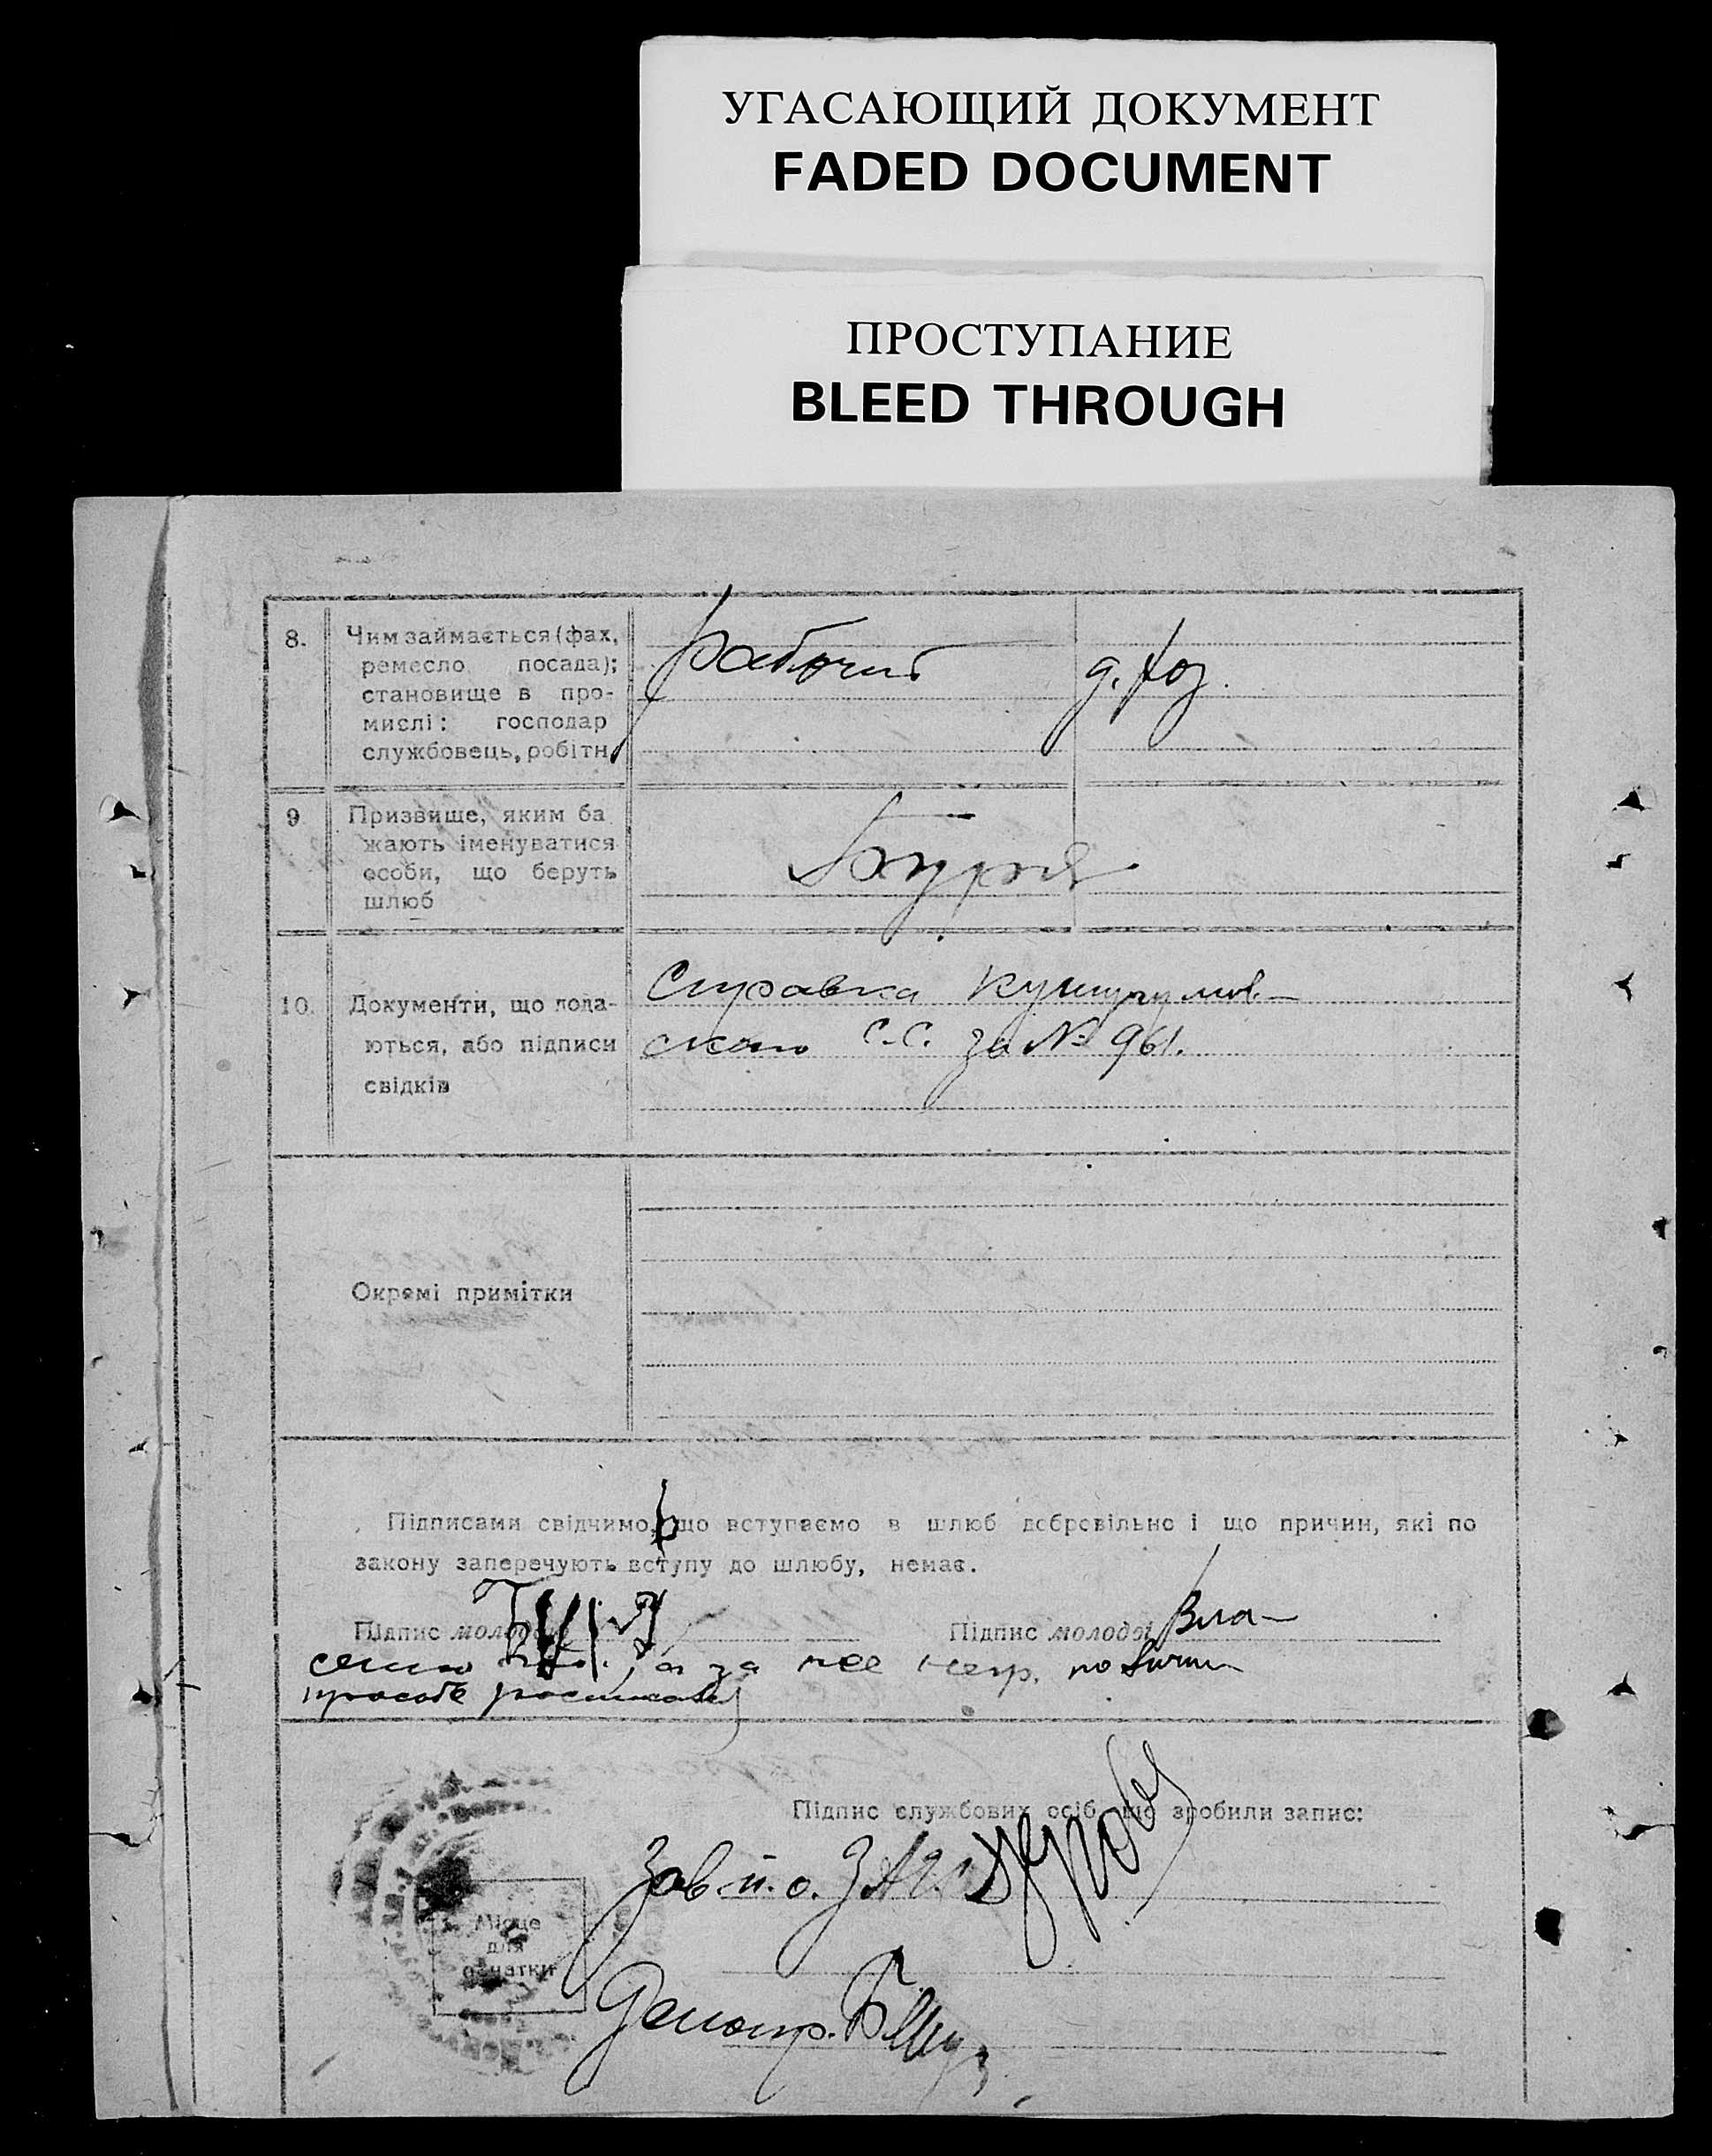 УГАСАЮЩИЙ ДОКУМЕНТ
FADED DOCUMENT
ПРОСТУПАНИЕ
BLEED THROUGH
8. Чим займається (фах,
ремесло посада);
становище в про-
мислі: господар
службовець, робітн
рабочий
д. хоз.
9 Призвище, яким ба
жають іменуватися
особи, що беруть
шлюб
10. Документи, що пода-
ються, або підписи
свідків
Справка Кушугумов-
ского С.С. за № 961.
Окремі примітки
Підписами свідчимо, що вступаємо в шлюб добровільно і що причин, які по
закону заперечують вступу до шлюбу, немає.
Підпис молодого
Підпис молодої
а за нее негр. по личн
просьбе
Підпис службових осіб, що зробили запис:
Зав п.о.
Місце
для
печатки